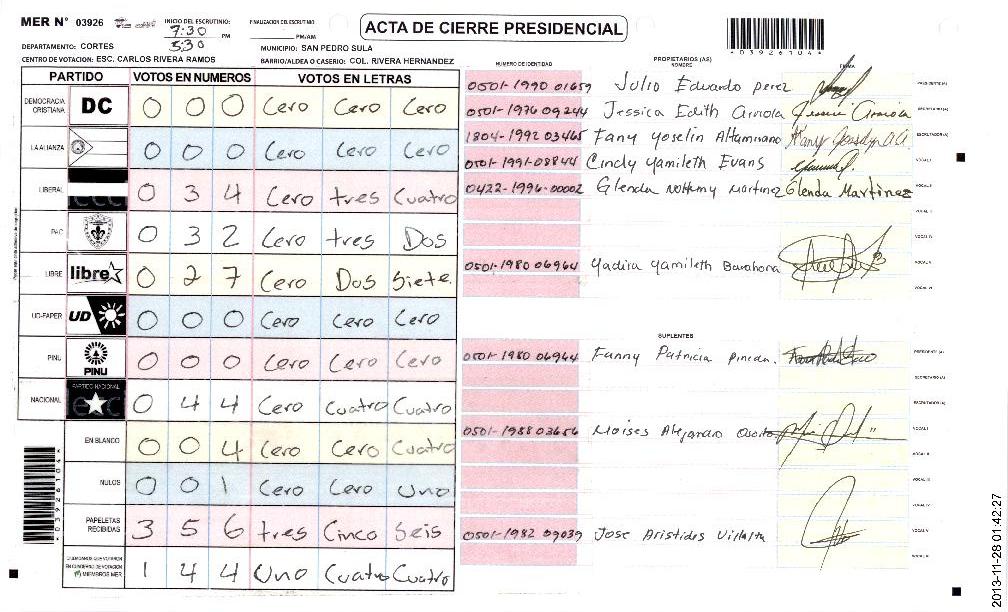 MER N° 03926
INICIO DEL ESCRUTINIO:
7:30 PM
5:30
FINALIZACION DEL ESCRUTINIO
PM/AM
ACTA DE CIERRE PRESIDENCIAL
03926104
DEPARTAMENTO: CORTES
MUNICIPIO: SAN PEDRO SULA
CENTRO DE VOTACION: ESC. CARLOS RIVERA RAMOS
BARRIO/ALDEA O CASERIO: COL. RIVERA HERNANDEZ
PARTIDO VOTOS EN NUMEROS VOTOS EN LETRAS
DEMOCRACIA CRISTIANA DC 0 0 0 Cero Cero Cero
LA ALIANZA 0 0 0 Cero Cero Cero
LIBERAL 0 3 4 Cero tres Cuatro
PAC 0 3 2 Cero tres Dos
LIBRE libre 0 2 7 Cero Dos Siete
UD-FAPER UD 0 0 0 Cero Cero Cero
PINU PINU 0 0 0 Cero Cero Cero
NACIONAL PARTIDO NACIONAL 0 4 4 Cero Cuatro Cuatro
EN BLANCO 0 0 4 Cero Cero Cuatro
NULOS 0 0 1 Cero Cero Uno
PAPELETAS RECIBIDAS 3 5 6 tres Cinco Seis
CIUDADANOS QUE VOTARON EN CUADERNO DE VOTACION MIEMBROS MER 1 4 4 Uno Cuatro Cuatro
03926104
NUMERO DE IDENTIDAD
PROPIETARIOS (AS)
NOMBRE
FIRMA
0501-1990 01659 Julio Eduardo perez PRESIDENTE (A)
0501-1976 09244 Jessica Edith Arriola SECRETARIO (A)
1804-1992 03465 Fany Yoselin Altamirano ESCRUTADOR (A)
0501-1991-08844 Cindy Yamileth Evans VOCAL I
0422-1996-00002 Glenda Nohemy Martinez Glenda Martinez VOCAL II
VOCAL III
VOCAL IV
0501-1980 06964 Yadira Yamileth Barahona VOCAL V
VOCAL VI
SUPLENTES
0501-1980 06964 Fanny Patricia pineda. PRESIDENTE (A)
SECRETARIO (A)
ESCRUTADOR (A)
0501-1988 03656 Moises Alejandro Osorto VOCAL I
VOCAL II
VOCAL III
VOCAL IV
0501-1982 09039 Jose Aristides Villalta VOCAL V
VOCAL VI
2013-11-28 01:42:27